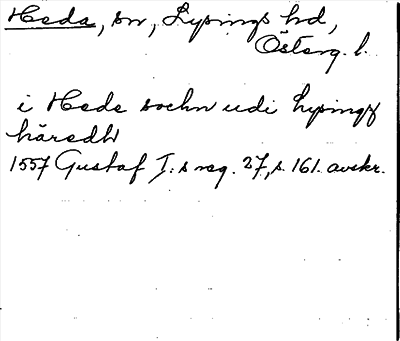 Heda, sn, Lysings hd,
Österg. l.
i Hede sochn udi Lysingz
häredh
1557 Gustaf I:s reg. 27, s. 161. avskr.